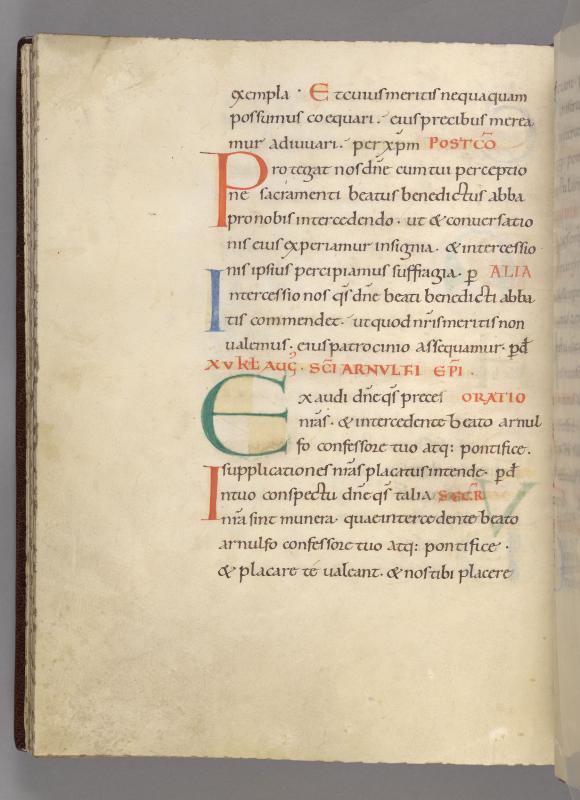 exempla · Et cuius meritis nequaquam
possumus coequari. eius precibus merea
mur adiuuari. per xp̄m POSTCŌ
Protegat nos dn̄e cum tui perceptio
ne sacramenti beatus benedictus abba
pro nobis intercedendo. ut & conuersatio
nis eius experiamur insignia. & intercessio
nis ipsius percipiamus suffragia. p̄ ALIA
Intercessio nos qs̄ dn̄e beati benedicti abba
tis commendet. ut quod nr̄is meritis non
ualemus. eius patrocinio assequamur. pd̄
XV KL̄ AUG̅. SC̄I ARNULFI EP̄I.
Exaudi dn̄e qs̄ preces ORATIO
nr̄as. & intercedente beato arnul
fo confessore tuo atq: pontifice.
supplicationes nr̄as placatus intende. pd̄
In tuo conspectu dn̄e qs̄ talia SECR̄
nr̄a sint munera. quae intercedente beato
arnulfo confessore tuo atq: pontifice.
& placare te ualeant. & nos tibi placere